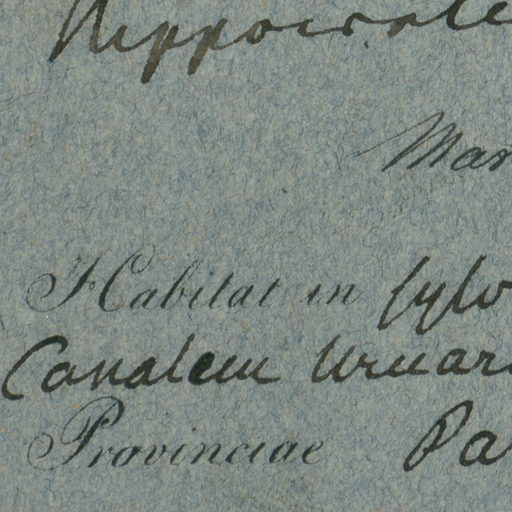 Hippocrate
Mar
Habitat in sylv
Canalem Uruar
Provinciae Pa